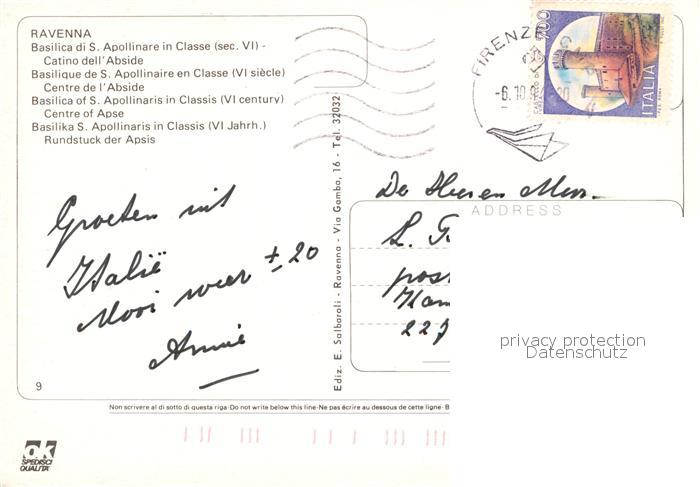 RAVENNA
Basilica di S. Apollinare in Classe (sec. VI) -
Catino dell'Abside
Basilique de S. Apollinaire en Classe (VI siècle)
Centre de l'Abside
Basilica of S. Apollinaris in Classis (VI century)
Centre of Apse
Basilika S. Apollinaris in Classis (VI Jahrh.)
Rundstuck der Apsis
Groeten uit
Italië
Mooi weer ± 20
Annie
9
Ediz. E. Salbaroli - Ravenna - Via Gamba, 16 - Tel. 32032
FIRENZE
-6.10
700
ITALIA
De Heren
ADDRESS
L.
post
privacy protection
Datenschutz
Non scrivere al di sotto di questa riga-Do not write below this line-Ne pas écrire au dessous de cette ligne-B
ok
SPEDISCI
QUALITA'